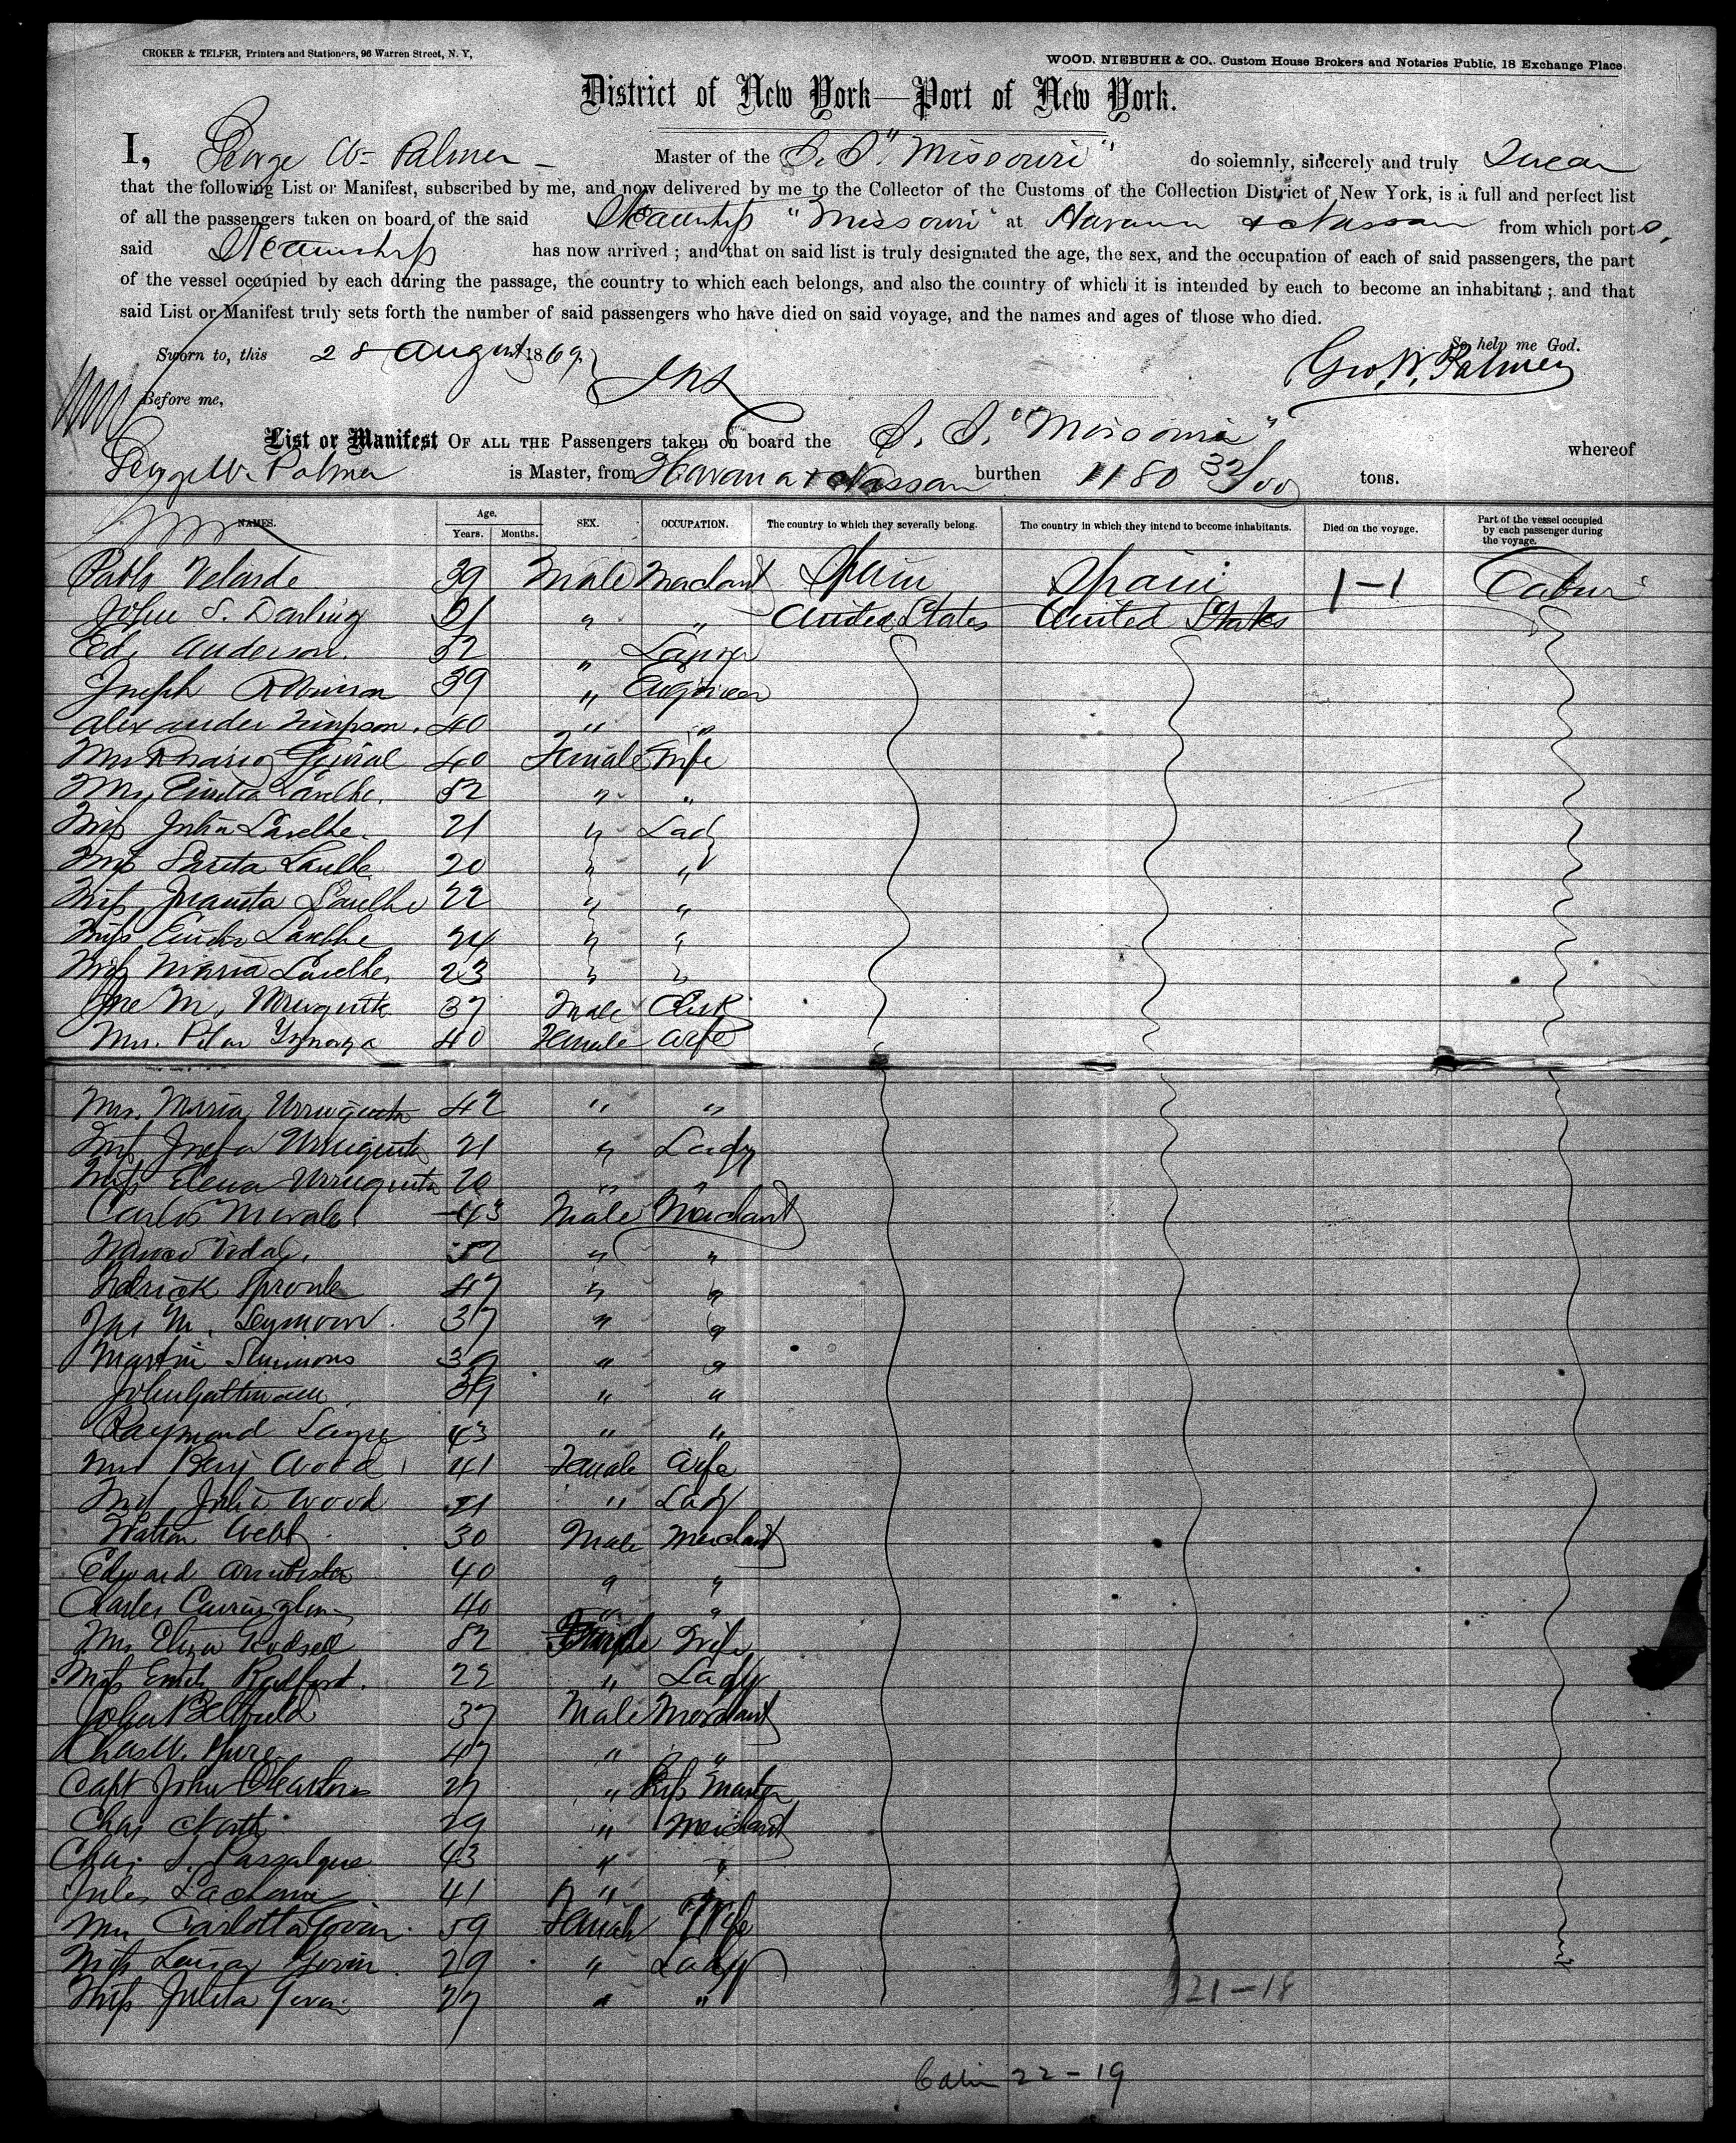 CROKER & TELFER, Printers and Stationers, 96 Warren Street, N. Y,
WOOD, NIEBUHR & CO., Custom House Brokers and Notaries Public, 18 Exchange Place.
District of New York—Port of New York.
I, George Wm Palmer Master of the S. S. "Missouri" do solemnly, sincerely and truly Swear
that the following List or Manifest, subscribed by me, and now delivered by me to the Collector of the Customs of the Collection District of New York, is a full and perfect list
of all the passengers taken on board of the said Steamship "Missouri" at Havana & Nassau from which ports,
said Steamship has now arrived ; and that on said list is truly designated the age, the sex, and the occupation of each of said passengers, the part
of the vessel occupied by each during the passage, the country to which each belongs, and also the country of which it is intended by each to become an inhabitant ; and that
said List or Manifest truly sets forth the number of said passengers who have died on said voyage, and the names and ages of those who died.
Sworn to, this 28 August 1869 So help me God.
Geo. W. Palmer
Before me,
List or Manifest OF ALL THE Passengers taken on board the S. S. "Missouri" whereof
George W. Palmer is Master, from Havana & Nassau burthen 1180 32/100 tons.
NAMES. Age. Years. Months. SEX. OCCUPATION. The country to which they severally belong. The country in which they intend to become inhabitants. Died on the voyage. Part of the vessel occupied by each passenger during the voyage.
Pablo Velarde 39 Male Merchant Spain Spain 1-1 Cabin
John S. Darling 31 " " United States United States
Ed. Anderson 32 " Lawyer
Joseph Robinson 39 " Engineer
Alexander Simpson. 40 " "
Mrs Rosario Guiral 40 Female Wife
Mrs 52 " "
Miss Julia 21 " Lady
Miss 20 " "
Miss Juanita 22 " "
Miss 24 " "
Miss Maria 23 " "
M. 37 Male Clerk
Mrs. Pilar Yznaga 40 Female Wife
Mrs. Maria Urruqueta 42 " "
Miss Josefa Urruqueta 21 " Lady
Miss Elena Urruqueta 20 " "
Carlos 43 Male Merchant
Vidal, 52 " "
Sproule 47 " "
Jas M. Seymour. 37 " "
Martin Simmons 39 " "
John 39 " "
Raymond 43 " "
Mrs Benj Wood 41 Female Wife
Miss Julia Wood 21 " Lady
Watson Webb 30 Male Merchant
Edward 40 " "
Charles Carrington 40 " "
Mrs Eliza 52 Female Wife
Miss Emily Radford. 22 " Lady
John Bellfield 37 Male Merchant
Chas W. 47 " "
Capt John 27 " Ship Master
Chas North 29 " Merchant
Chas S. Passalque 43 " "
Jules 41 " "
Mrs Carlotta Govin 59 Female Wife
Miss Louisa Govin 29 " Lady
Miss Julita Govin 27 " "
21-18
Cabin 22-19